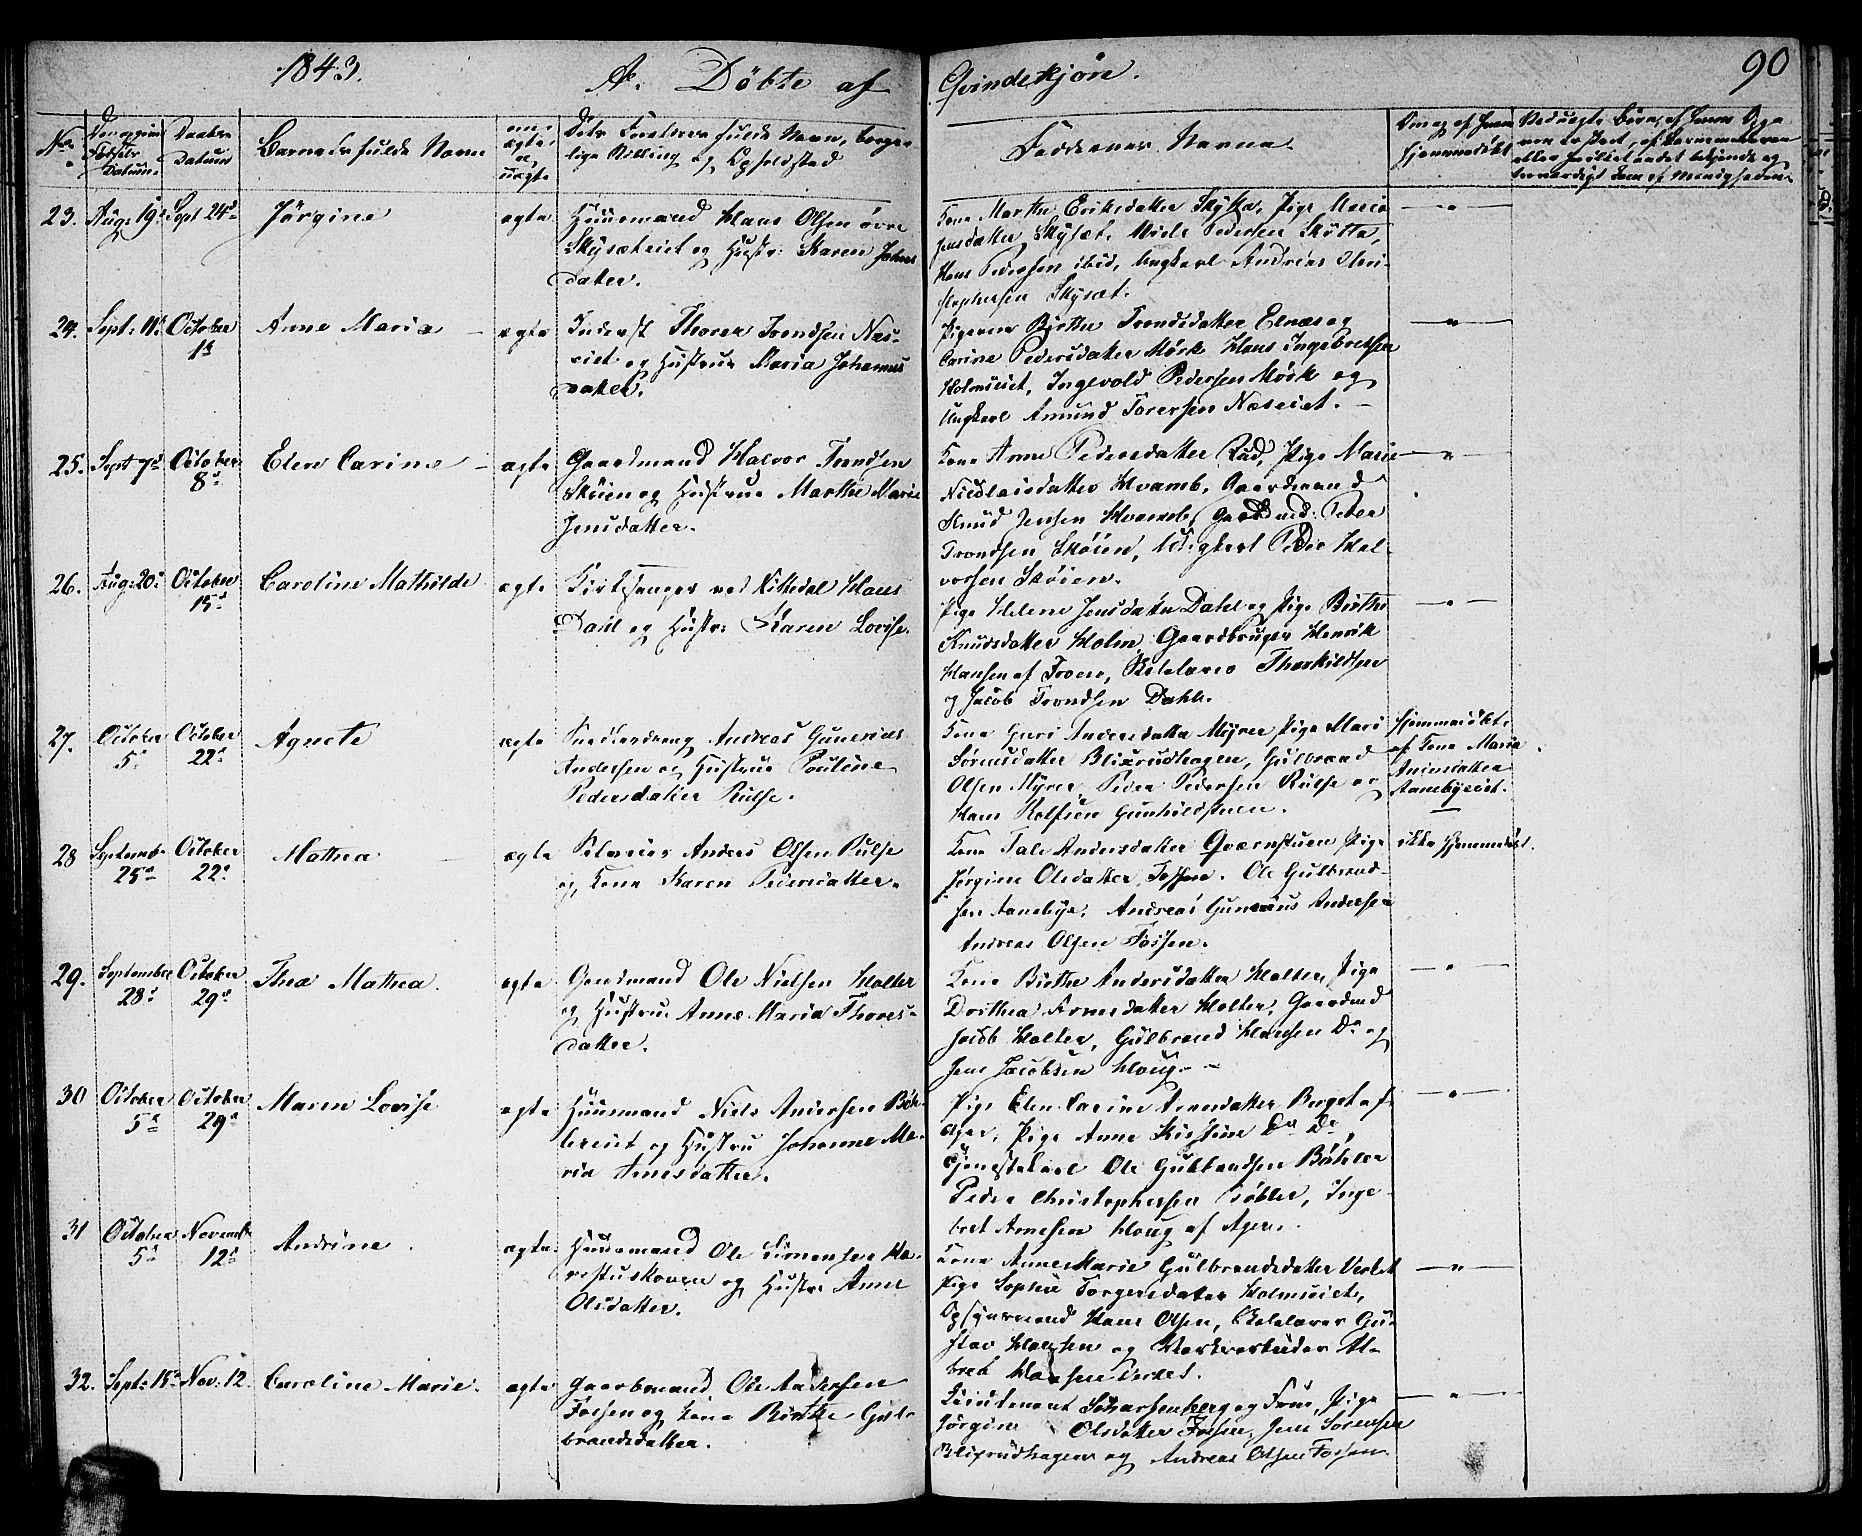 1843.
A. Döbte af Qvindekjön.
90
No
Den opgivne Fødsels Datum
Daabens Datum
Barnets fulde Navn
om ægte el. uægte
Dets Forældres fulde Navn, borgerlige Stilling og Opholdssted
Faddernes Navne.
Om og af hvem hjemmedöbt
23. Aug: 19de Sept 24de Jörgine ægte Huusmand Hans Olsen övre
Skysæteiet og Hustr: Karen Johans
datter.
Kone Marthe Eriksdatter Skytta, Pige Maria
Jensdatter Skysæt. Niels Pedersen Skötta,
Hans Pedersen ibid, Ungkarl Andreas Chri-
stophersen Skysæt.
24. Sept: 11te October 1ste Anne Maria ægte Inderst Thorer Trondsen Næs-
eiet og Hustrue Maria Johannes
datter.
Pigerne Birthe Trondsdatter Elnæs og
Carine Pedersdatter Mörk Hans Ingebretsen
Holmeiet, Ingevold Pedersen Mörk og
Ungkarl Amund Torersen Næseiet.
25. Sept 7de October 8de Elen Carine ægte Gaardmand Halvor Trondsen
Sköien og Hustrue Marthe Marie
Jensdatter.
Kone Anne Pedersdatter Rud, Pige Marie
Nicolaisdatter Hvamb, Gaardmand
Knud Jensen Hvamb, Gaardmd: Peder
Trondsen Sköien, Ungkarl Peder Hal-
vorsen Sköien.
26. Aug: 20de October 15de Caroline Mathilde ægte Kirkesanger ved Nittedal Hans
Dahl og Hustr: Karen Lovise.
Pige Helene Jensdatter Dahl og Pige Birthe
Knudsdatter Holm, Gaardbruger Henrik
Hansen af Froen, Skolelærer Thorkildsen
og Jacob Trondsen Dahl.
27. October 5te October 22de Agnete ægte Andreas Gunerius
Andersen og Hustrue Pouline
Pedersdatter Rulse.
Kone Guri Andersdatter Myrer Pige Mari
Sörensdatter Blixrudhagen, Gulbrand
Olsen Myrer, Peder Pedersen Rulse og
Hans Rolfsen Gunhildstuen.
hjemmedöbt
af Kone Maria
Andersdatter
Aanebyeiet.
28 Septemb. 25de October 22de Mathea ægte Anders Olsen Rulse
og Kone Karen Pedersdatter.
Kone Tale Andersdatter Qværnstuen Pige
Jörgine Olesdatter Fossen. Ole Gulbrand-
sen Aanebye, Andreas Gunerius Andersen
Andreas Olsen Fossen.
ikke hjemmedöbt.
29. September 28de October 29de Thea Mathea. ægte Gaardmand Ole Nielsen Holter
og Hustrue Anne Maria Thores-
datter.
Kone Birthe Andersdatter Holter, Pige
Dorthea Arnesdatter Holter, Gaardmd
Jacob Holter, Gulbrand Hansen Do og
Jens Jacobsen Houg.
30 October 5te October 29de Maren Lovise ægte Huusmand Niels Andersen Böh-
lereiet og Hustru Johanne Ma-
ria Arnesdatter.
Pige Elen Carine Arnesdatter Berget af
Ager, Pige Anne Kirstine Do Do,
Tjenestekarl Ole Gulbrandsen Böhler
Peder Christophersen Böhler, Inge-
bret Arnesen Houg af Ager.
31 October 5te Novemb. 12te Andrine. ægte Huusmand Ole Simensen Ha-
vestuskoven og Hustr: Anne
Olsdatter.
Kone Anne Marie Gulbrandsdatter Verket
Pige Sophie Torgersdatter Holmeiet,
Opsynsmand Hans Olsen, Skolelærer Gu-
stav Hansen og Værksarbeider Al-
bret Hansen Verket.
32. Sept: 15de Nov: 12 Caroline Marie. ægte Gaardmand Ole Andersen
Fossen og Kone Birthe Gul-
brandsdatter.
Lieutenant Scharfenberg og Frue, Pige
Jörgine Olsdatter Fossen, Jens Sörensen
Blixrudhagen og Andreas Olsen Fossen